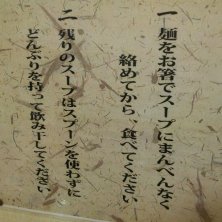 一 麺をお箸でスープにまんべんなく
絡めてから、食べてください
二 残りのスープはスプーンを使わずに
どんぶりを持って飲み干してください